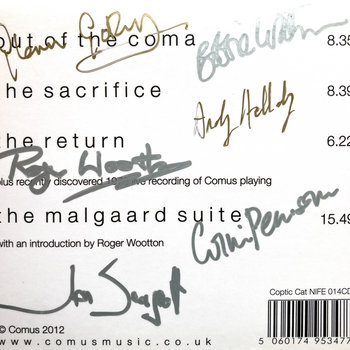 out of the coma 8.35
the sacrifice 8.39
the return 6.22
plus recently discovered recording of Comus playing
the malgaard suite 15.49
with an introduction by Roger Wootton
Roger Wootton
Andy Hellaby
Colin Pearson
Jon Seagroatt
Coptic Cat NIFE 014CD
© Comus 2012
www.comusmusic.co.uk
5 060174 953477